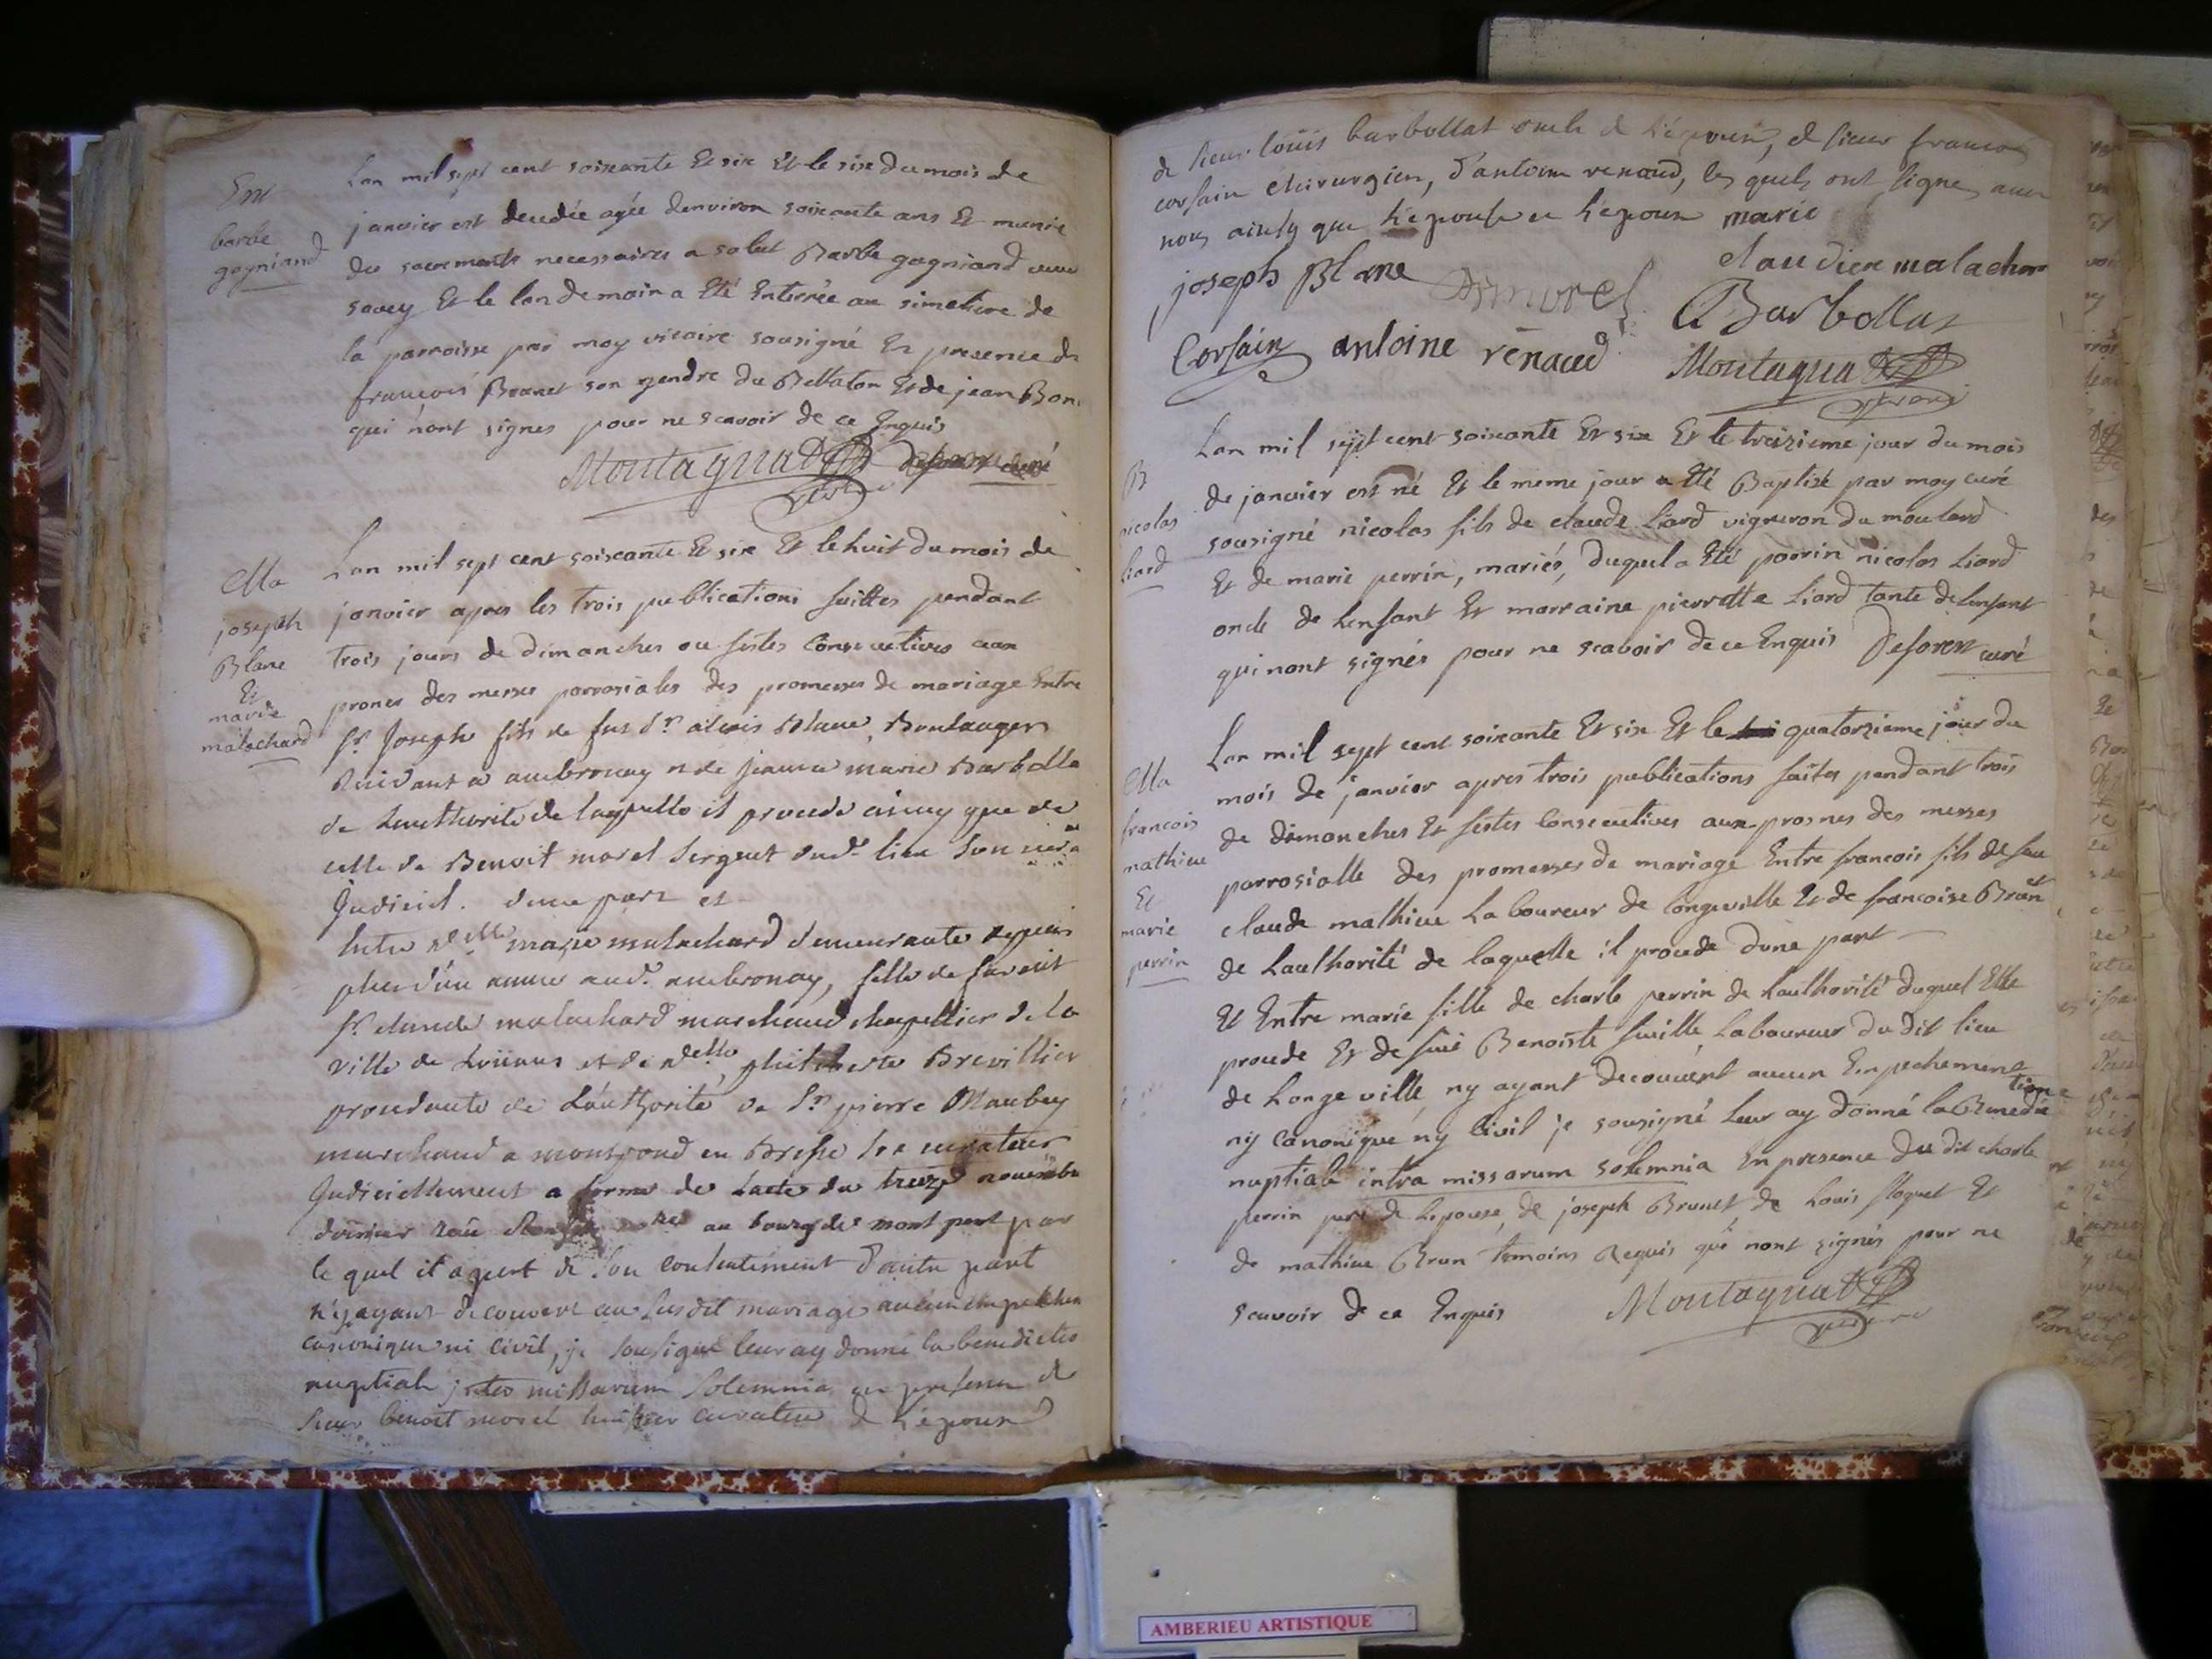 Ent
barbe
gagniand
Lan mil sept cent soixante Et six Et le six du mois de
janvier est decedée agée denviron soixante ans Et munie
des sacrements necessaires a salut Barbe gagniand veuve
savey Et le lendemain a Eté Enterrée au simetiere de
la parroisse par moy vicaire sousigné En presence de
francois Brunet son gendre du Bettaton Et de jean
qui n'ont signes pour ne scavoir de ce Enquis
Montagnad
Ma
joseph
Blanc
Et
marie
malachard
Lan mil sept cent soixante Et six Et le huit du mois de
janvier apres les trois publications faittes pendant
trois jours de dimanches ou festes Consecutives aux
prones des messes parrosiales des promesses de mariage Entre
Sr Joseph fils de feu Sr Blanc, Boulanger
Residant a ambronay et de jeanne marie Barbolla
de Lauthorité de laquelle il procede ainsy que de
celle de Benoit morel sergent dud. lieu son
Judiciel. dune part et
Entre delle marie malachard demeurante depuis
plus d'un année aud. ambronay, fille de
Sr claude malachard marchand chapellier de la
ville de Loüans et de delle Brevillier
procedante de L'authorité de Sr pierre Maubey
marchand a montpond en Bresse son curateur
Judiciellement a forme de Lacte du treize novembre
dernier recu au bourg de mont pont par
le quel il apert de son consentement d'autre part
n'y ayant decouvert au susdit mariage aucun empechem
canonique ni civil, je sousigné leur ay donné la benedictio
nuptiale inter missarum solemnia en presence de
sieur benoit morel huissier curateur de L'epoux
de sieur loüis barbollat oncle de L'epoux, et sieur francois
corsain chirurgien, d'antoine renaud, les quels ont signes avec
nous ainsy que L'epouse et L'epoux marie
joseph Blanc morel claudien malachar
Corsain antoine renaud Barbollat
Montagnad
B
nicolas
Liard
Lan mil sept cent soixante Et six Et le treizieme jour du mois
de janvier est né Et le meme jour a Eté Baptisé par moy curé
sousigné nicolas fils de claude Liard vigneron du moulard
Et de marie perrin, mariés, duquel a Eté parrin nicolas Liard
oncle de Lenfant Et marraine pierrette Liard tante de Lenfant
qui nont signés pour ne scavoir de ce Enquis Deforest curé
Ma
francois
mathieu
Et
marie
perrin
Lan mil sept cent soixante Et six Et le quatorzieme jour du
mois de janvier apres trois publications faites pendant trois
de dimanches Et festes Consecutives aux prosnes des messes
parrosialle des promesses de mariage Entre francois fils de feu
claude mathieu Laboureur de longeville Et de francoise Brun
de Lauthorité de laquelle il procede dune part
Et Entre marie fille de charle perrin de Lauthorité duquel Elle
procede Et de Benoiste Laboureur du dit lieu
de Longeville, ny ayant decouvert aucun Empechement
ny canonique ny Civil je sousigné leur ay donné la Benedic
tion
nuptiale intra missarum solemnia En presence du dit charle
perrin pere de Lepouse, de joseph Brunet de Louis floquet Et
de mathieu Brun temoins Requis qui nont signés pour ne
scavoir de ce Enquis Montagnad
AMBERIEU ARTISTIQUE